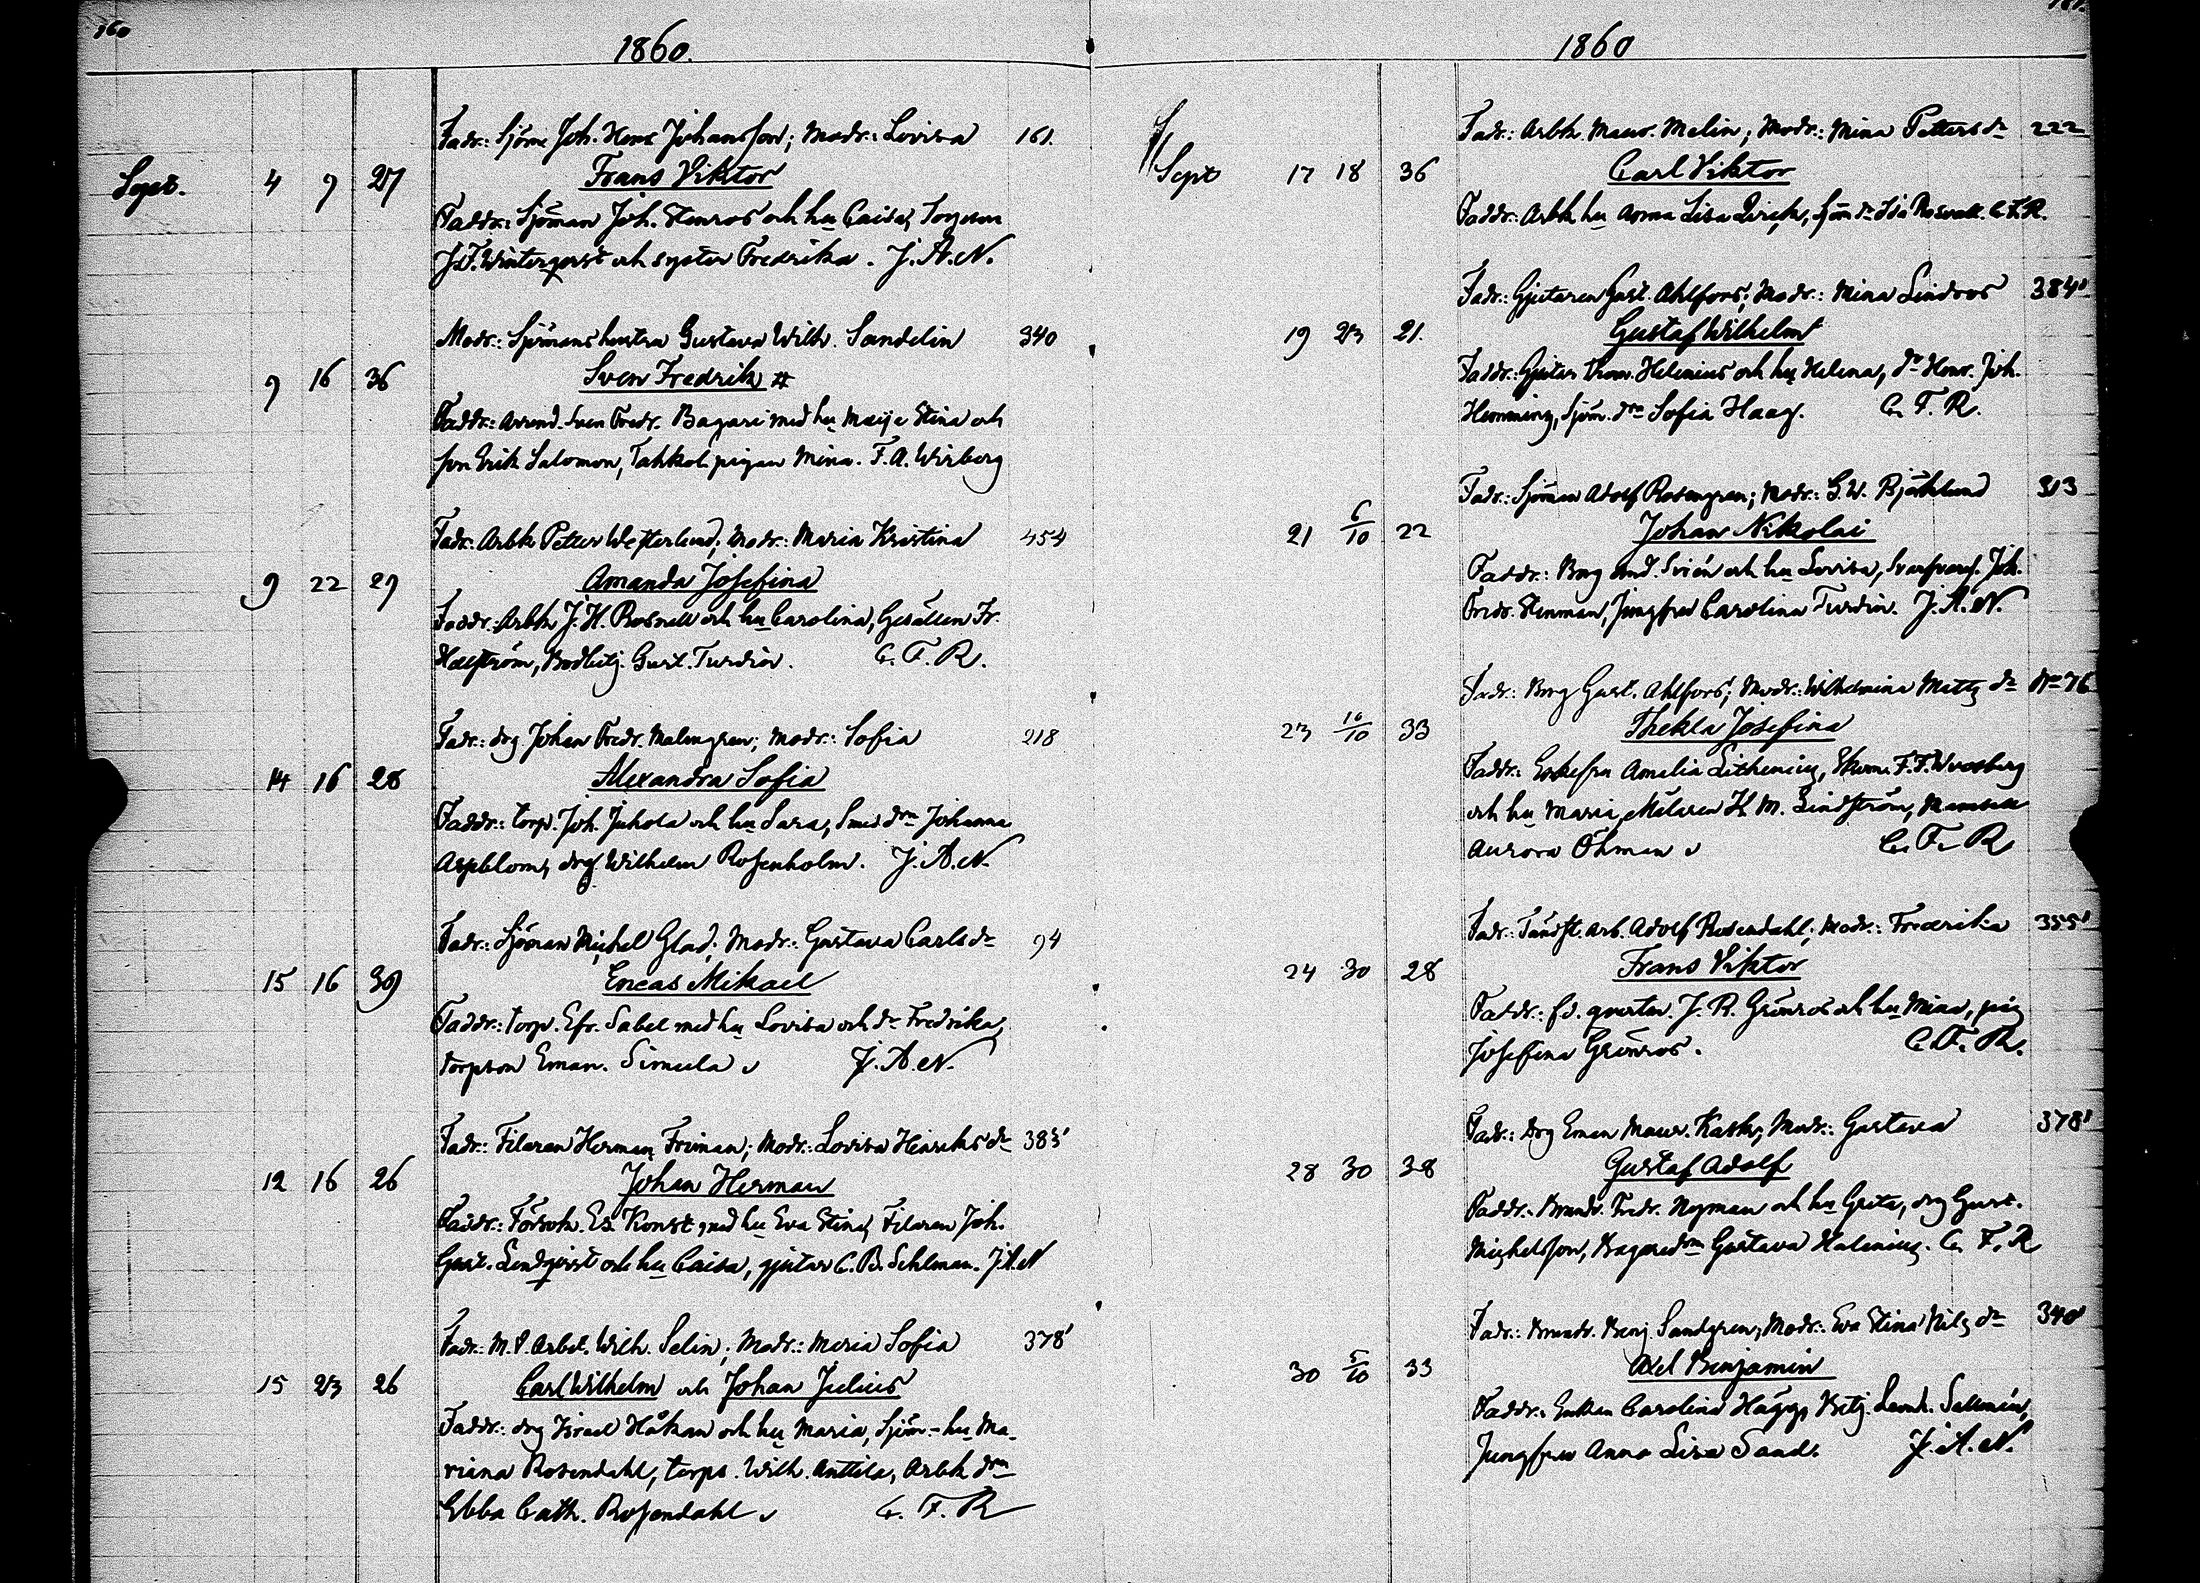 160
1860.
Fadr: Sjöm Joh. Hens Johansson; Modr: Lovisa 161.
Sept. 4 9 27 Frans Viktor
Faddr: Sjöman Joh. Stenros och hu Caisa, Torpson
J.F. Wintergerst och syster Fredrika. J.A.N.
Modr: Sjömans hustru Gustava Wilh. Sandelin 340
9 16 36 Sven Fredrik #
Faddr: Arrend. Sven Fredr. Bagari med hu Maija Stina och
son Erik Salomon, Tahkol pigan Mina. F.A. Wirberg
Fadr: Arbk Petter Westerlund; Modr: Maria Kristina 454
9 22 29 Amanda Josefina
Faddr: Arbk J.H. Rosnell och hu Carolina, Gesällen Fr.
Hellström, Bodbetj. Gust. Turdin. C.F.R.
Fadr: drg Johan Fredr. Malmgren; Modr: Sofia 218
14 16 28 Alexandra Sofia
Faddr: torp. Joh. Juhola och hu Sara, Smed drn Johanna
Aspblom, drg Wilhelm Rosenholm. J.A.N.
Fadr: Sjöman Michel Glad; Modr: Gustava Carls dr 94
15 16 39 Eneas Mikael
Faddr: torp. Efr. Sabel med hu Lovisa och dr Fredrika,
torpson Eman. Simula J.A.N.
Fadr: Filaren Herman Friman; Modr: Lovisa Hinriks dr 385'
12 16 26 Johan Herman
Faddr: Försök. Es. Konst med hu Eva Stina, Filaren Joh.
Gust. Lindqvist och hu Caisa, gjutar C.B. Sehlman. J.A.N
Fadr: M.V. Arbet. Wilh. Selin; Modr: Maria Sofia 378'
15 23 26 Carl Wilhelm och Johan Julius
Faddr: drg Israel Håkan och hu Maria, Sjöm-hu Ma-
riana Rosendahl, torps. Wilh. Anttila, Arbk drn
Ebba Cath. Rosendahl C.F.R
161.
1860
Fadr: Arbk Maur. Melin; Modr: Mina Petters dr 222
Sept 17 18 36 Carl Viktor
Faddr: Arbk hu Anna Lisa Qvick, Sjöm dr Ida Rosvall. C.F.R.
Fadr: Gjutaren Gust. Ahlfors; Modr: Mina Lindros 384'
19 23 21. Gustaf Wilhelm
Faddr: Gjutar Thom. Helenius och hu Helena, dr Henr. Joh.
Hemming, Sjöm. drn Sofia Haag. C.F.R.
Fadr: Sjöman Adolf Rosengren; Modr: G.W. Björklund 313
21 6/10 22 Johan Nikolai
Faddr: Borg And. Svién och hu Lovisa, Svarfvarg. Joh.
Fredr. Stenman, Jungfru Carolina Turdin. J.A.N.
Fadr: Borg Gust. Ahlfors; Modr: Wilhelmina Matts dr No 76
23 16/10 33 Thekla Josefina
Faddr: Enkefru Amelia Lithenius, Skom. F.F. Wressberg
och hu Maria, Målaren H.M. Lindström, Mamsell
Aurora Öhman C.F.R
Fadr: Tändst. Arb. Adolf Rosendahl; Modr: Fredrika 355'
24 30 28 Frans Viktor
Faddr: fd. qvarter. J.R. Grönros och hu Mina, pig
Josefina Grönros. C.F.R.
Fadr: Drg Eman Maur. Kask; Modr: Gustava 378'
28 30 38 Gustaf Adolf
Faddr: Brandv. Fredr. Nyman och hu Greta, drg Gust.
Michelsson, Bagaredrn Gustava Halenius. C.F.R
Fadr: Brandv. Benj Sandgren; Modr: Eva Stina Nils dr 340
30 5/10 33 Axel Benjamin
Faddr: Enkan Carolina Hägg, Betj. Leond. Sallmén,
Jungfru Anna Lisa Sand. J.A.N.